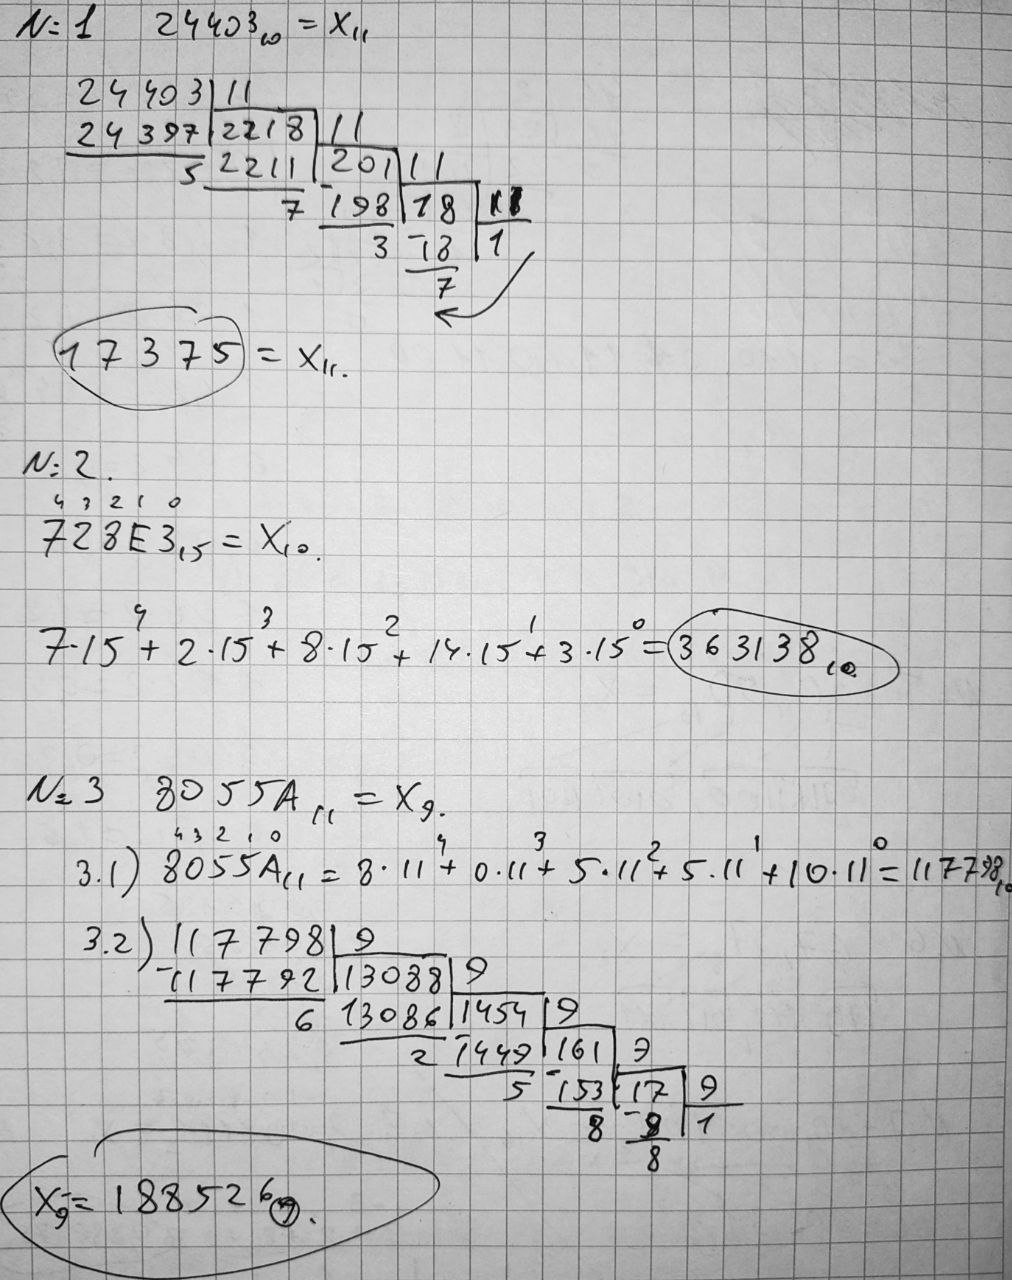 №1 24403₁₀ = X₁₁
24403 | 11
24397 | 2218 | 11
5 2211 | 201 | 11
7 -198 | 18 | 11
3 -18 | 1
7
17375 = X₁₁.
№2.
4 3 2 1 0
728E3₁₅ = X₁₀.
7·15⁴ + 2·15³ + 8·15² + 14·15¹ + 3·15⁰ = 363138₁₀
№3 8055A₁₁ = X₉.
4 3 2 1 0
3.1) 8055A₁₁ = 8·11⁴ + 0·11³ + 5·11² + 5·11¹ + 10·11⁰ = 117798₁₀
3.2) 117798 | 9
-117792 | 13088 | 9
6 13086 | 1454 | 9
2 -1449 | 161 | 9
5 -153 | 17 | 9
8 -9 | 1
8
X₉ = 188526₉.